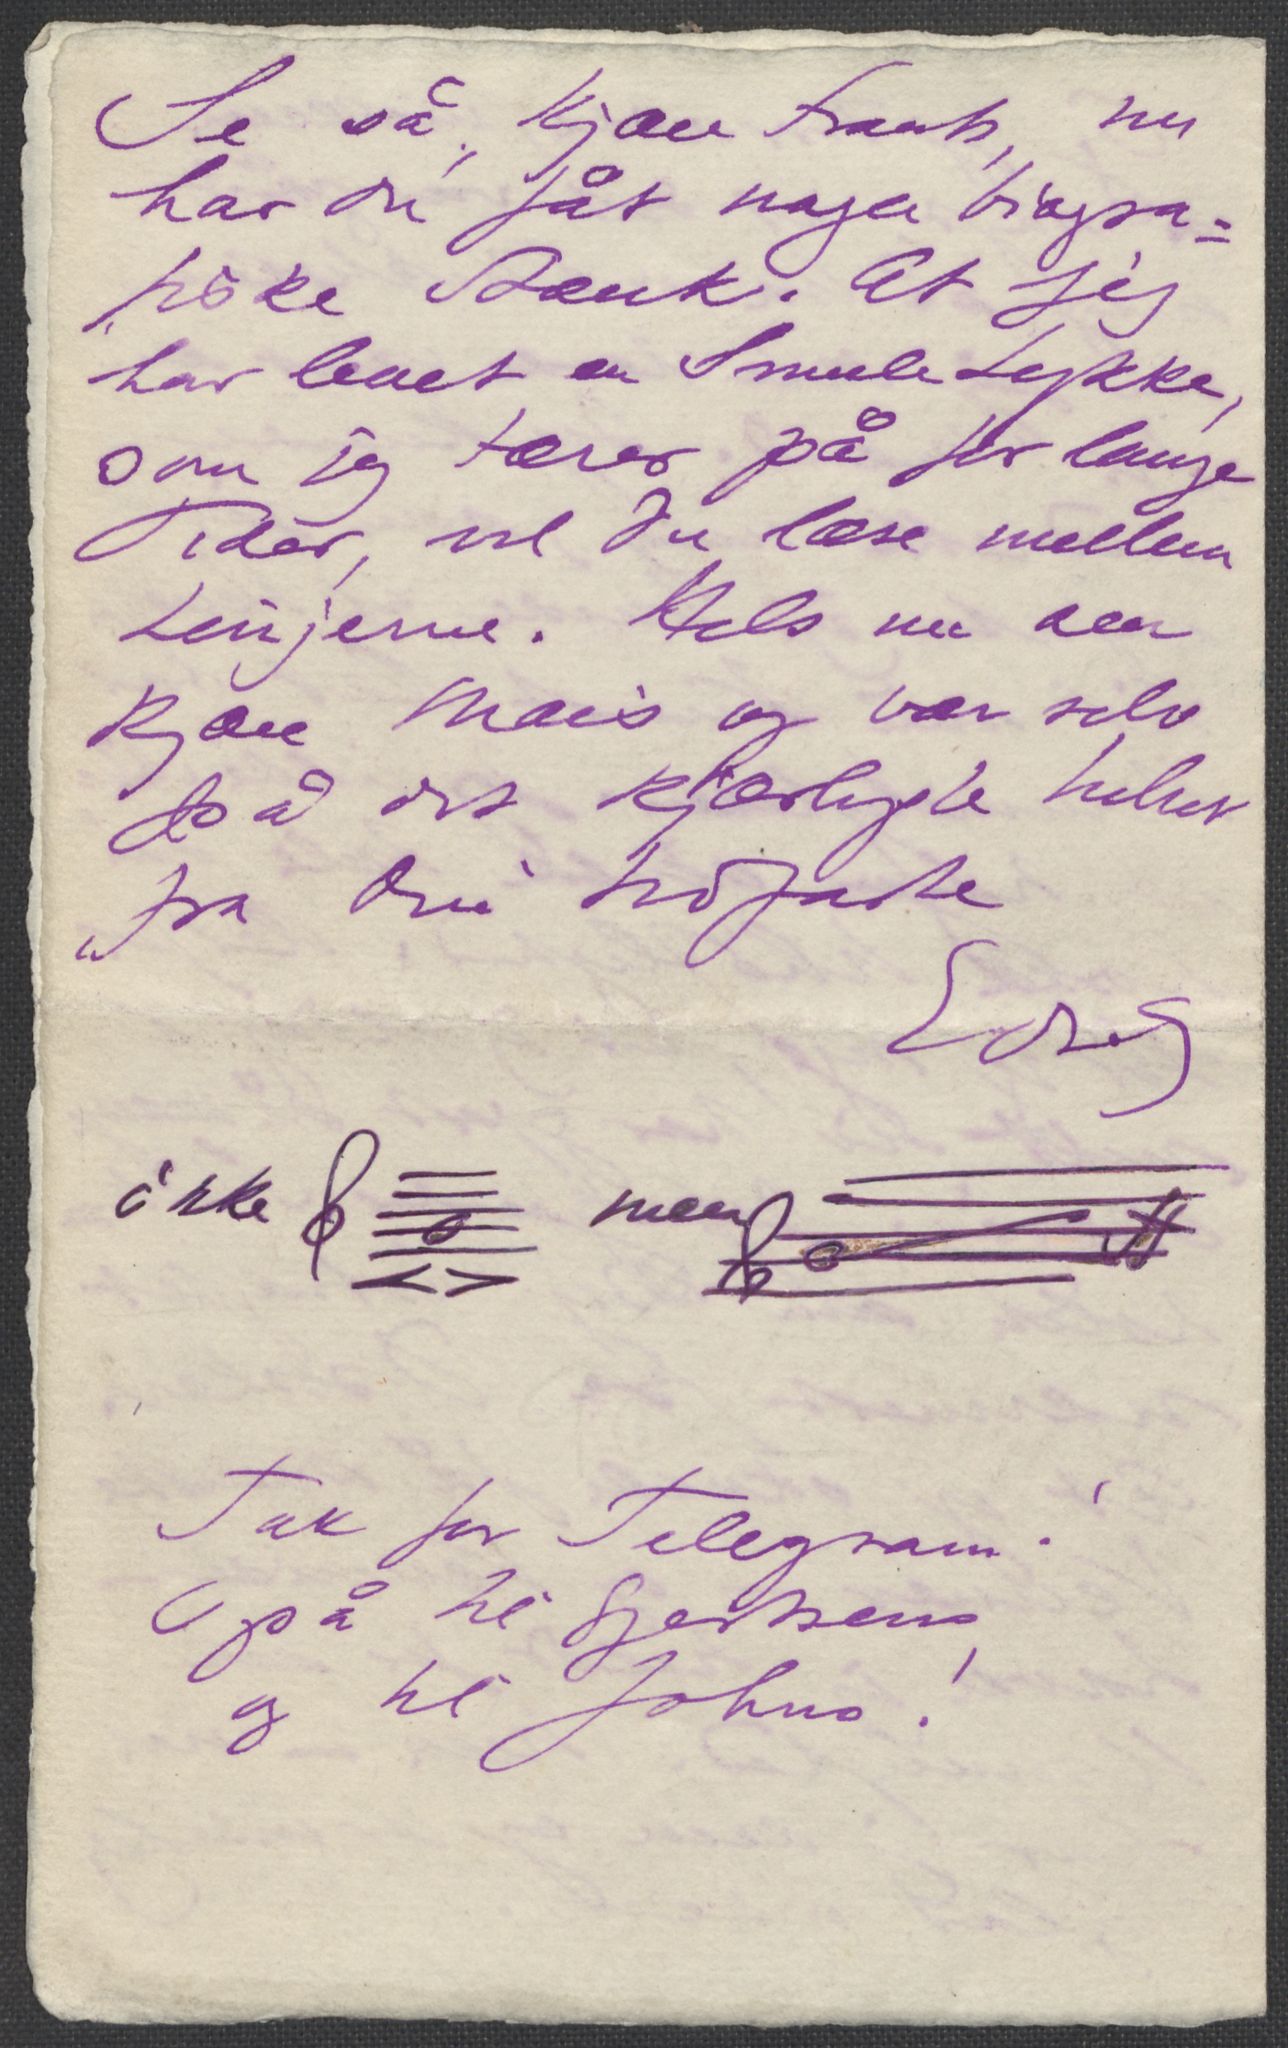 Se så, kjære Frants, nu
har Du fåt nogen biogra=
fiske Stænk. At jeg
har levet en Smule Lykke,
som jeg tærer på for lange
Tider, vil Du læse mellem
Linjerne. Hils nu den
kjære Marie og vær selv
på det kjærligste hilset
fra Din trofaste
Edvg
ikke men
Tak for Telegram!
Også til Gjertsens
og til Johns!